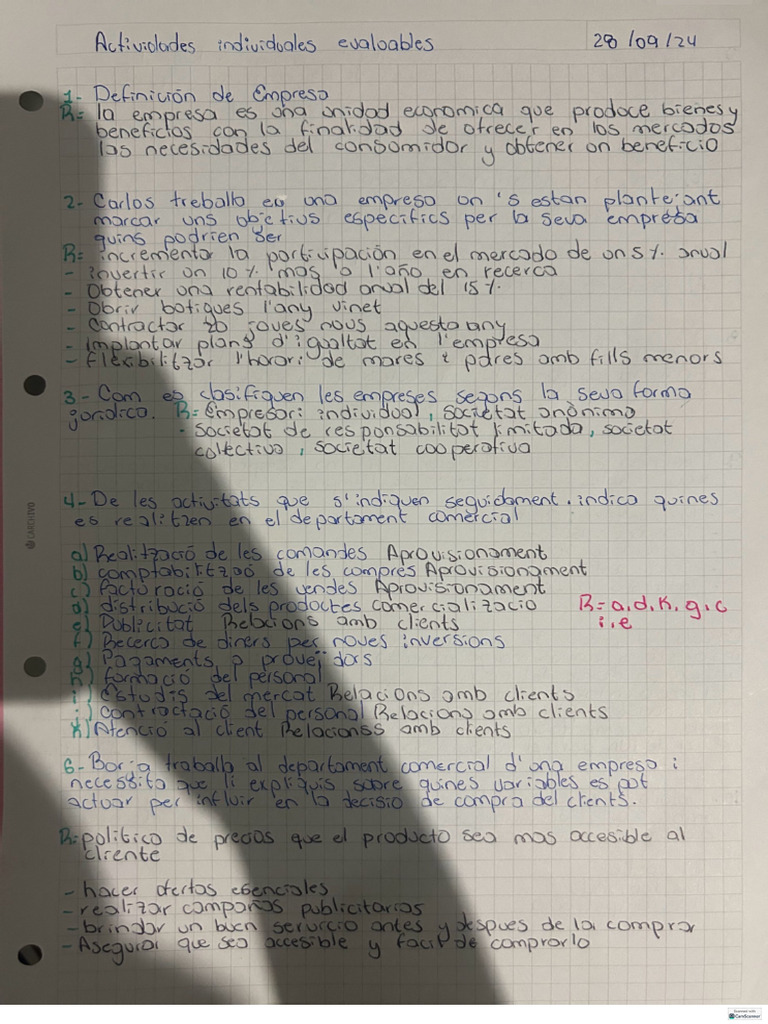 Actividades individuales evaluables 28/09/24
1- Definición de Empresa
R= la empresa es una unidad economica que produce bienes y
beneficios con la finalidad de ofrecer en los mercados
las necesidades del consumidor y obtener un beneficio
2- Carlos treballa en una empresa on 's estan plantejant
marcar uns objectius especifics per la seva empresa
quins podrien ser
R= incrementar la participación en el mercado de un 5% anual
- invertir un 10% mas a l'año en recerca
- Obtener una rentabilidad anual del 15%
- Obrir botigues l'any vinet
- Contractar 20 joves nous aquesta any
- implantar plans d'igualtat en l'empresa
- flexibilitzar l'horari de mares i pares amb fills menors
3- Com es clasifiquen les empreses segons la seva forma
juridica. R= Empresari individual, societat anònima
- societat de responsabilitat limitada, societat
colectiva, societat cooperativa
4- De les activitats que s'indiquen seguidament. indica quines
es realitzen en el departament comercial
a) Realització de les comandes Aprovisionament
b) comptabilitzaó de les compres Aprovisionament
c) facturació de les vendes Aprovisionament
d) distribució dels productes comercialització R= a, d, k, g, c
e) Publicitat Relacions amb clients i, e
f) Recerca de diners per noves inversions
g) Pagaments a proveïdors
h) formació del personal
i) Estudis del mercat Relacions amb clients
j) contractació del personal Relacions amb clients
k) Atenció al client Relacionss amb clients
6- Borja traballa al departament comercial d'una empresa i
necessita que li expliquis sobre quines variables es pot
actuar per influir en la decisio de compra del clients.
R= politica de precios que el producto sea mas accesible al
cliente
- hacer ofertas esenciales
- realizar compañas publicitarias
- brindar un buen servicio antes y despues de la comprar
- Asegurar que sea accesible y facil de comprarlo
CARCHIVO
Scanned with
CamScanner